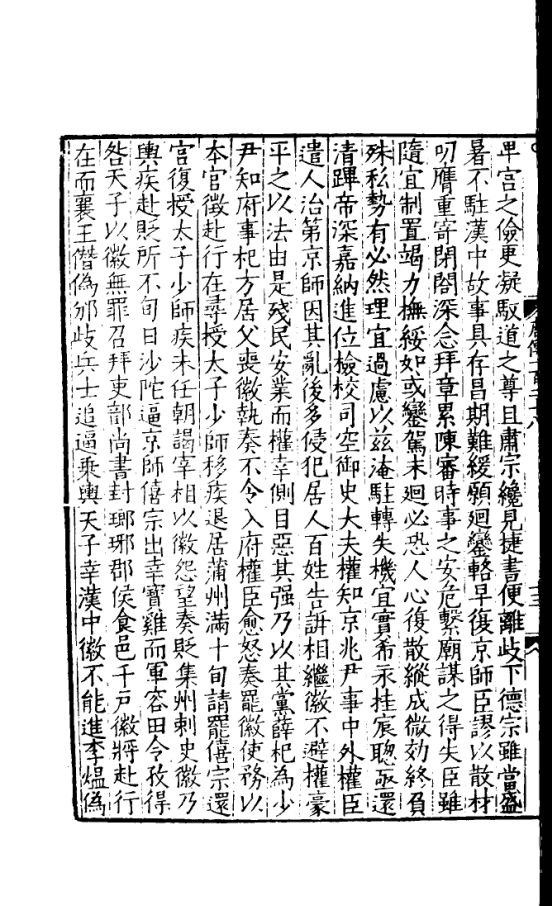 卑宫之儉更凝馭道之尊且肅宗纔見捷書便離歧下德宗雖當盛
暑不駐漢中故事具存昌期難緩願廻鑾輅早復京師臣謬以散材
叨膺重寄閉閤深念拜章累陳審時事之安危繫廟謀之得失臣雖
隨宜制置竭力撫綏如或鑾駕未廻必恐人心復散縱成微効終負
殊私勢有必然理宜過慮以兹淹駐轉失機宜實希永挂宸聰亟還
清蹕帝深嘉納進位檢校司空御史大夫權知京兆尹事中外權臣
遣人治第京師因其亂後多侵犯居人百姓告訴相繼徽不避權豪
平之以法由是殘民安業而權幸側目惡其强乃以其黨薛杞為少
尹知府事杞方居父喪徽執奏不令入府權臣愈怒奏罷徽使務以
本官徵赴行在尋授太子少師移疾退居蒲州滿十旬請罷僖宗還
宫復授太子少師疾未任朝謁宰相以徽怨望奏貶集州刺史徽乃
輿疾赴貶所不旬日沙陀逼京師僖宗出幸寶雞而軍容田令孜得
咎天子以徽無罪召拜吏部尚書封瑯琊郡侯食邑千戶徽將赴行
在而襄王僭偽邠歧兵士追逼乘輿天子幸漢中徽不能進李熅偽